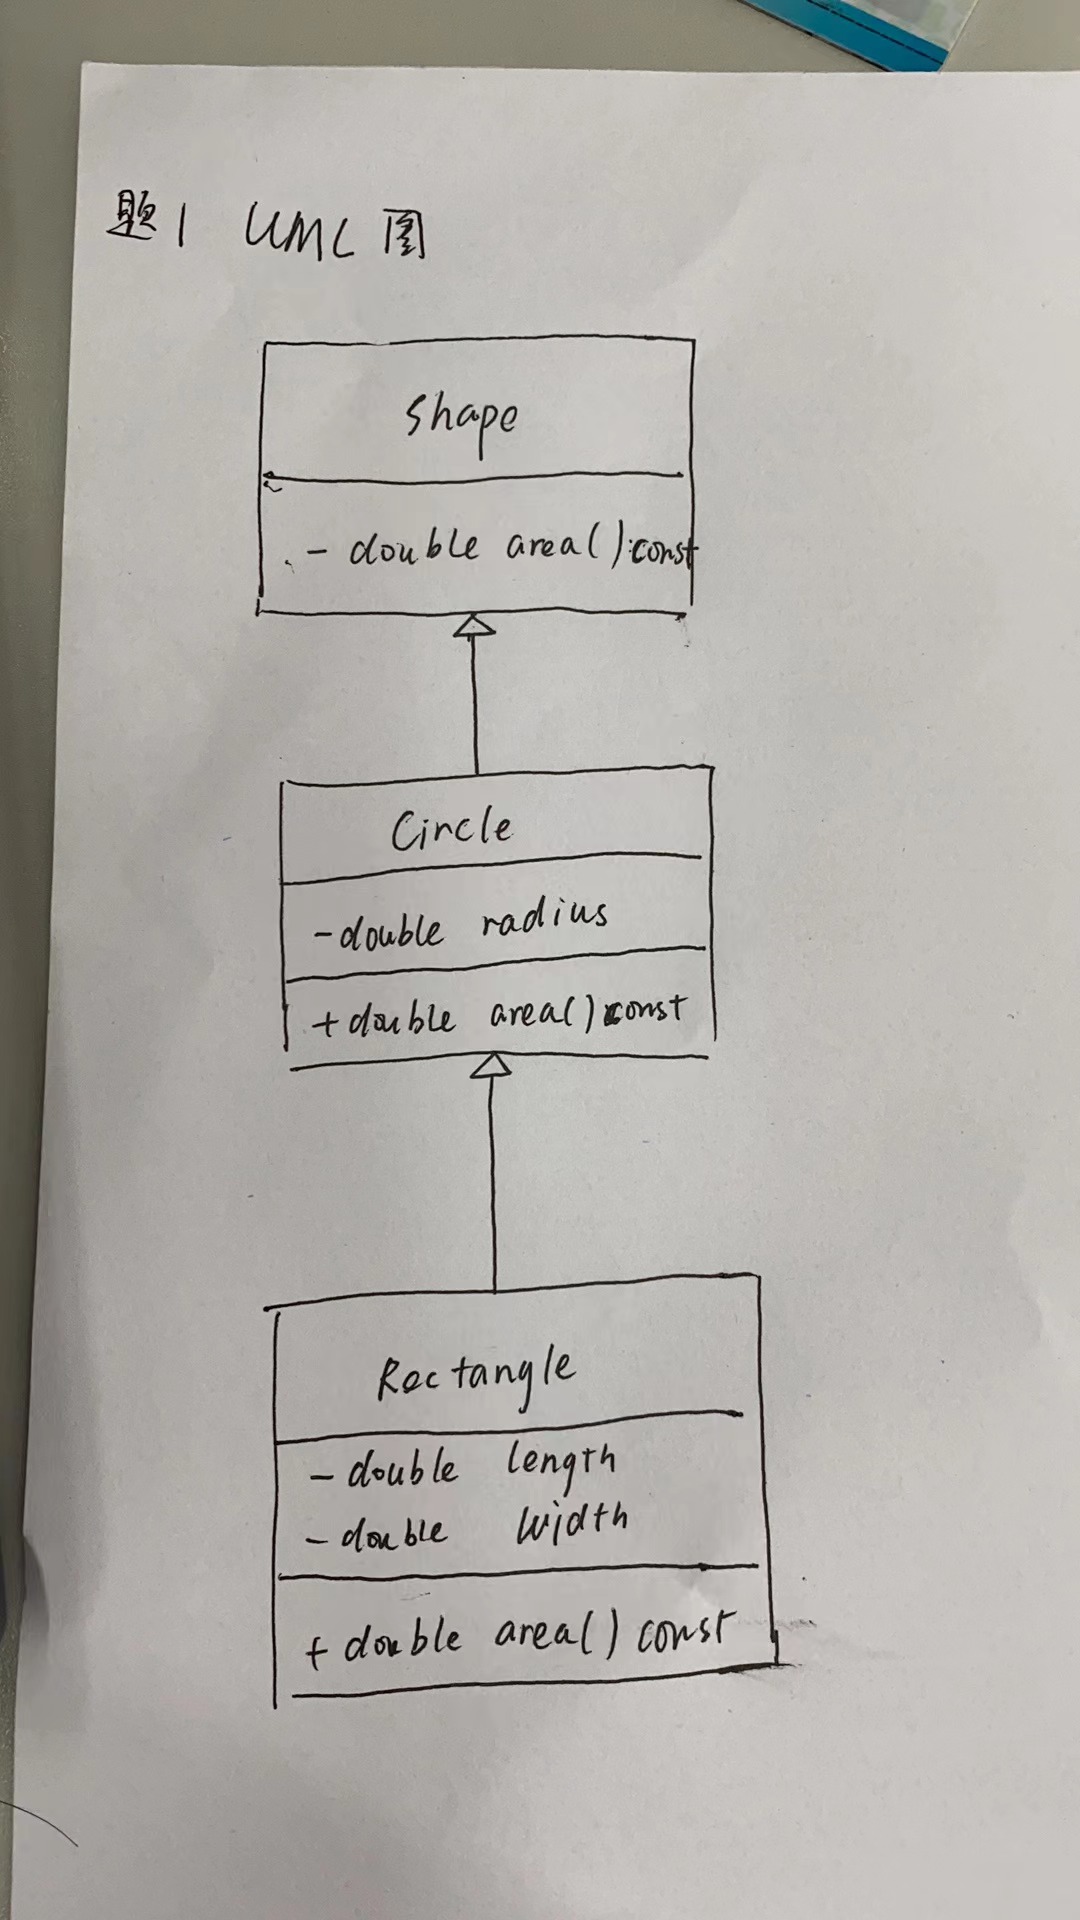 题1 UML图
Shape
- double area() const
Circle
- double radius
+ double area() const
Rectangle
- double length
- double width
+ double area() const